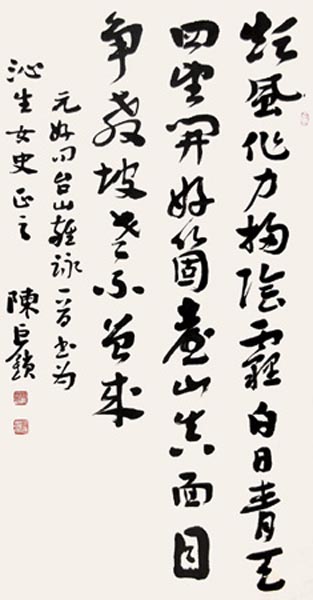 顛風作力掃陰霾白日青天
四望開好箇臺山真面目
争教坡老不曾來
元好问台山雜詠一首书为
沁生女史正之 陳巨鎖